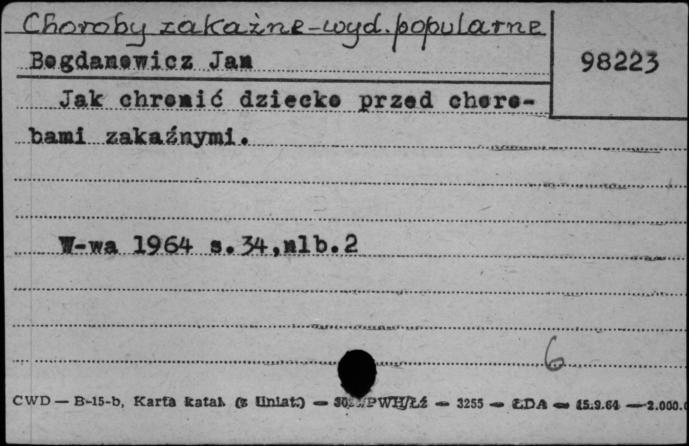 Choroby zakaźne-wyd. popularne
Bogdanowicz Jan
98223
Jak chronić dziecko przed choro-
bami zakaźnymi.
W-wa 1964 s.34,nlb.2
6
CWD — B-15-b, Karta katal. (z liniat.) — PWH/Łź — 3255 — ŁDA — 15.9.64 — 2.000.0